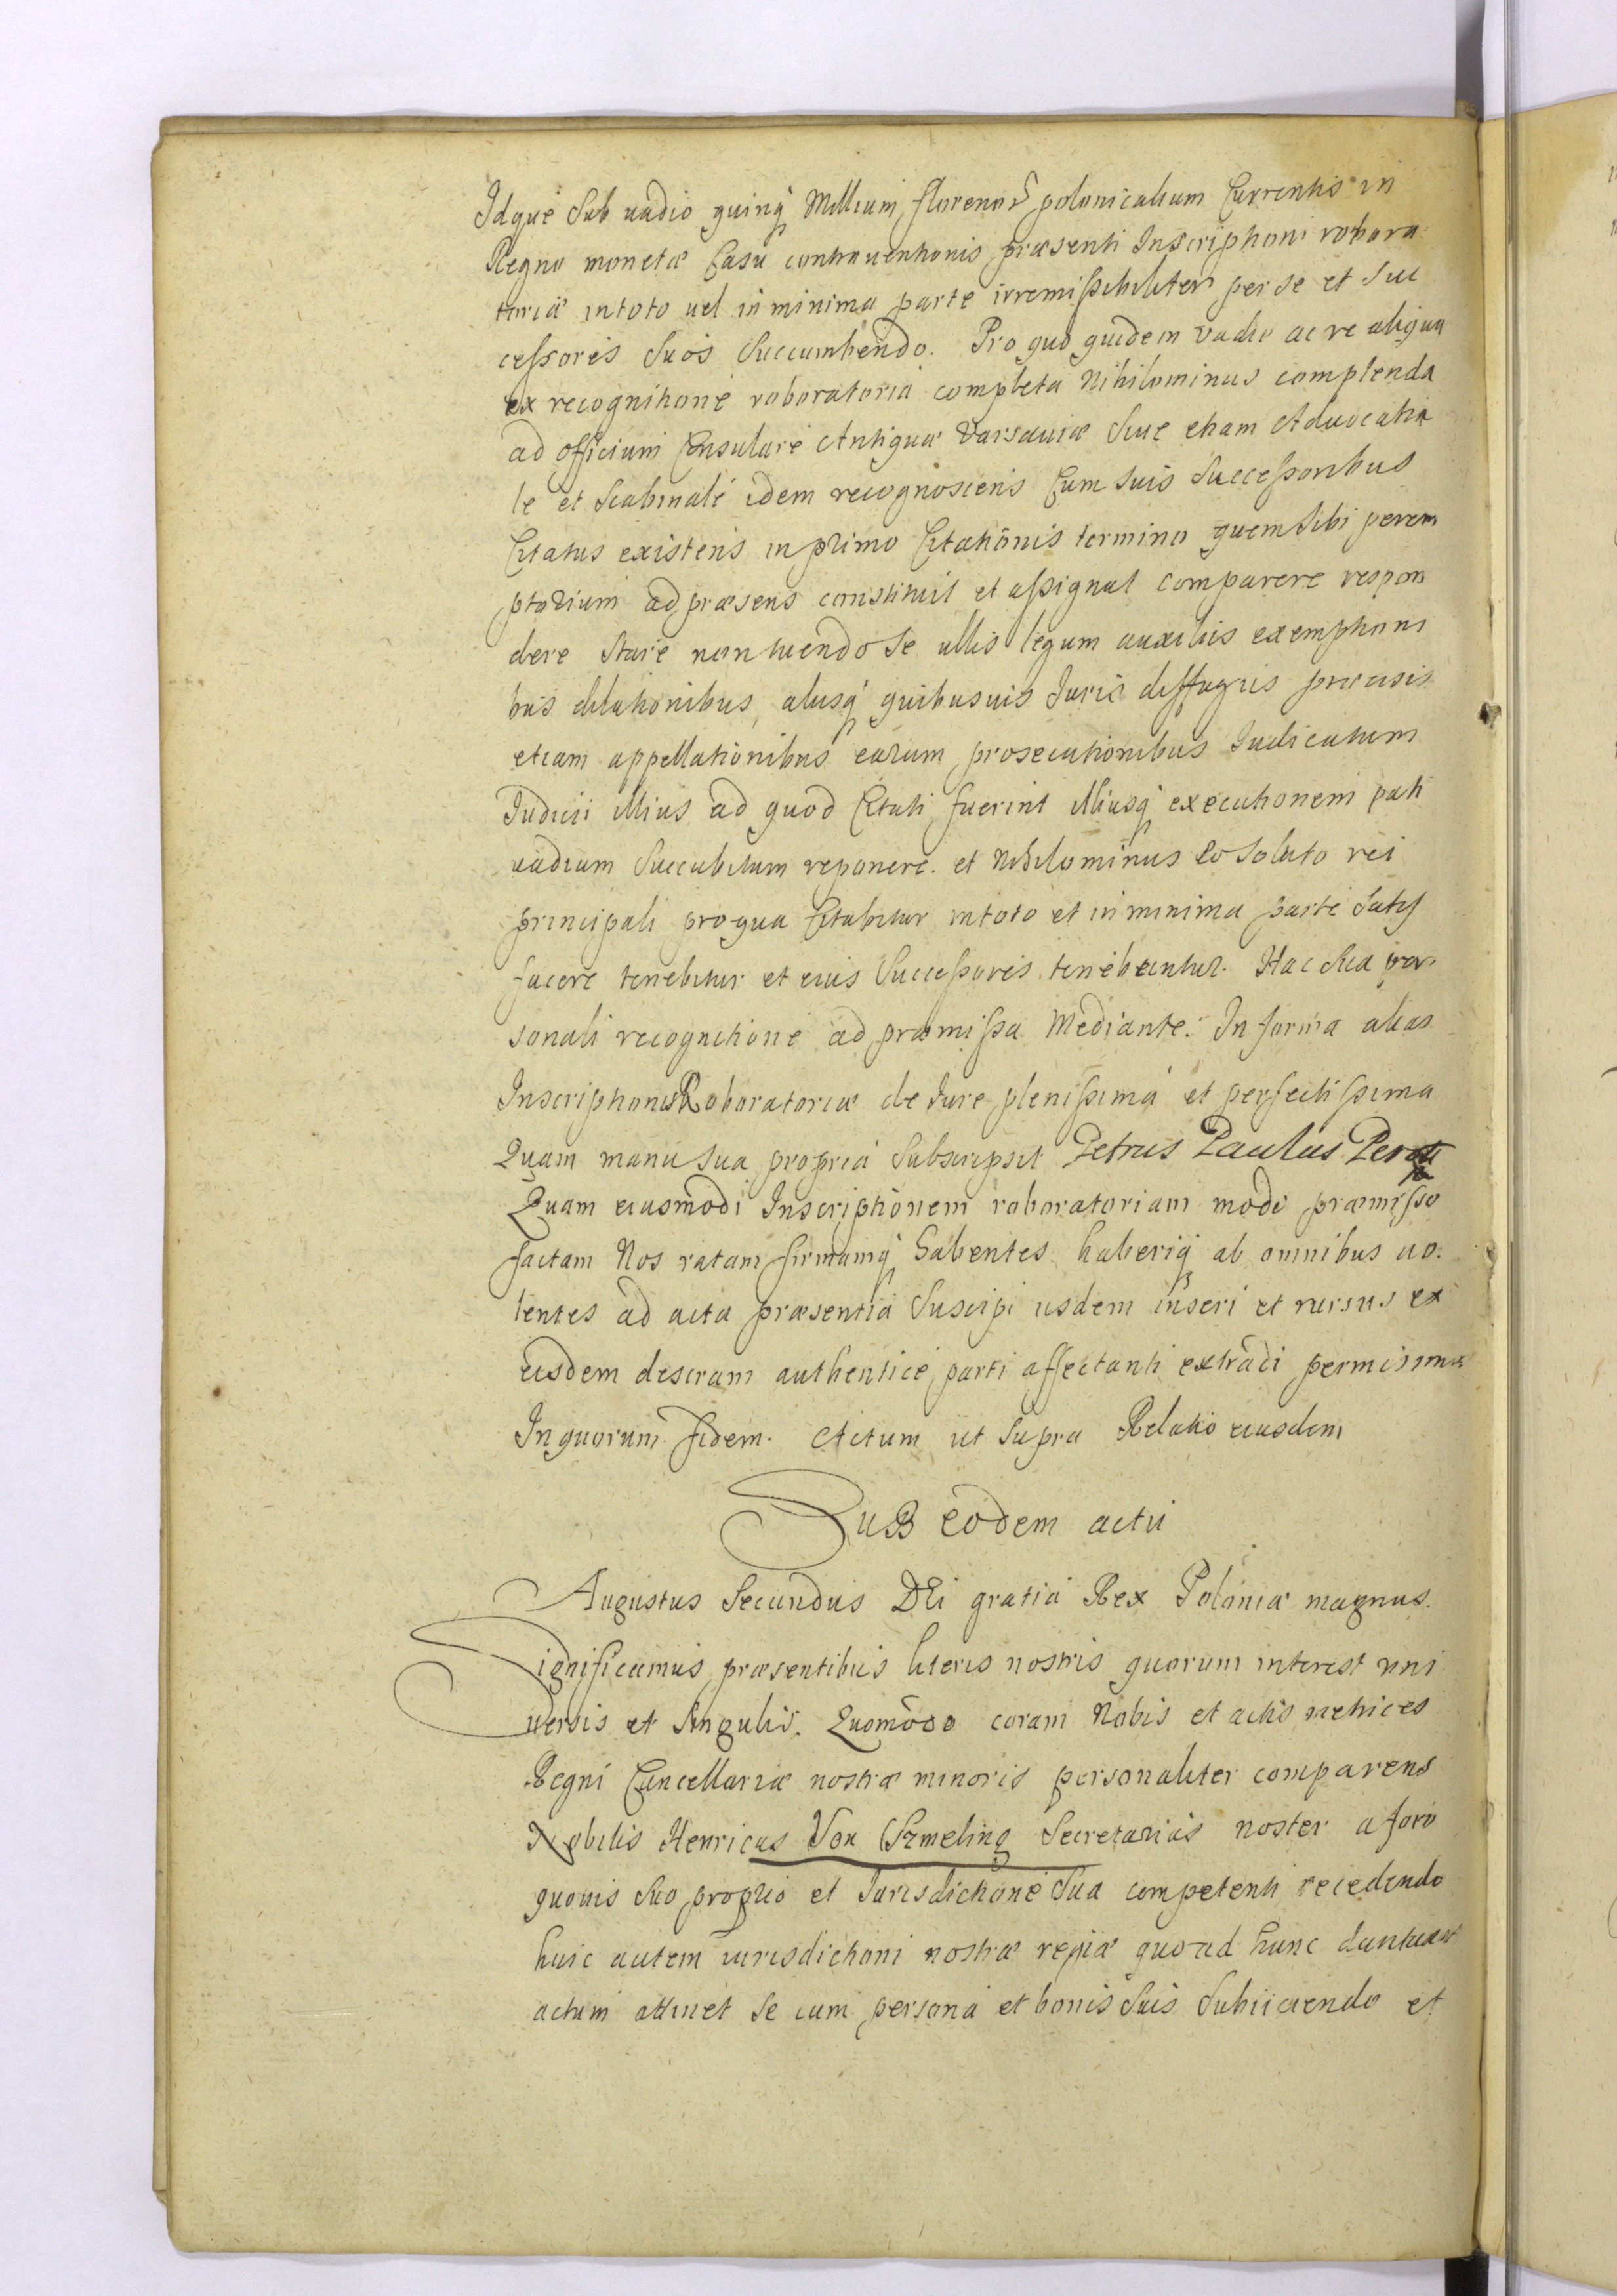 Idque Sub uadio quinq Millium florenor polonicalium Currentis in
Regno monetæ Casu contrauentionis præsenti Inscriptioni robora
toriæ in toto uel in minima parte irremissibiliter per se et suc
cessores Suos Succumbendo. Pro quo quidem vadio ac re aliqua
ex recognitione roboratoria completa Nihilominus complenda
ad officium Consulare Antiquæ Varsauiæ Siue etiam Aduocatia
le et Scabinale idem recognoscens Cum suis Successoribus
Citatus existens in primo Citationis termino quem sibi perem
ptorium ad præsens constituit et assignat comparere respon
dere Stare non tuendo Se ullis legum auxiliis exemptioni
bus dilationibus, aliisq quibusuis Iuris diffugiis præcisis
etiam appellationibus earum prosecutionibus Iudicatum
Iudicii illius ad quod Citati fuerint illiusq executionem pati
uadium Succubitum reponere. et Nihilominus eo soluto rei
principali pro qua Citabitur in toto et in minima parte Satis
facere tenebitur et eius Successores tenebuntur. Hac Sua per
sonali recognitione ad præmissa Mediante. In forma alias
Inscriptionis Roboratoriæ de Iure plenissima et perfectissima
Quam manu sua propria Subscripsit Petrus Paulus Peroti
Quam eiusmodi Inscriptionem roboratoriam modo præmisso
factam Nos ratam firmamq habentes haberiq ab omnibus uo
lentes ad acta præsentia Suscipi iisdem inseri et rursus ex
eisdem descram authentice parti affectanti extradi permisimus
In quorum fidem. Actum ut Supra Relatio eiusdem
SuB eodem actu
Augustus Secundus DEi gratia Rex Poloniæ magnus.
Significamus præsentibus literis nostris quorum interest uni
uersis et Singulis. Quomodo coram Nobis et actis metrices
Regni Cancellariæ nostræ minoris personaliter comparens
Nobilis Henricus Von Szmeling Secretarius noster a foro
quouis Suo proprio et Iurisdictione Sua competenti recedendo
huic autem iurisdictioni nostræ regiæ quoad hunc duntaxat
actum attinet Se cum persona et bonis Suis Subiiciendo et